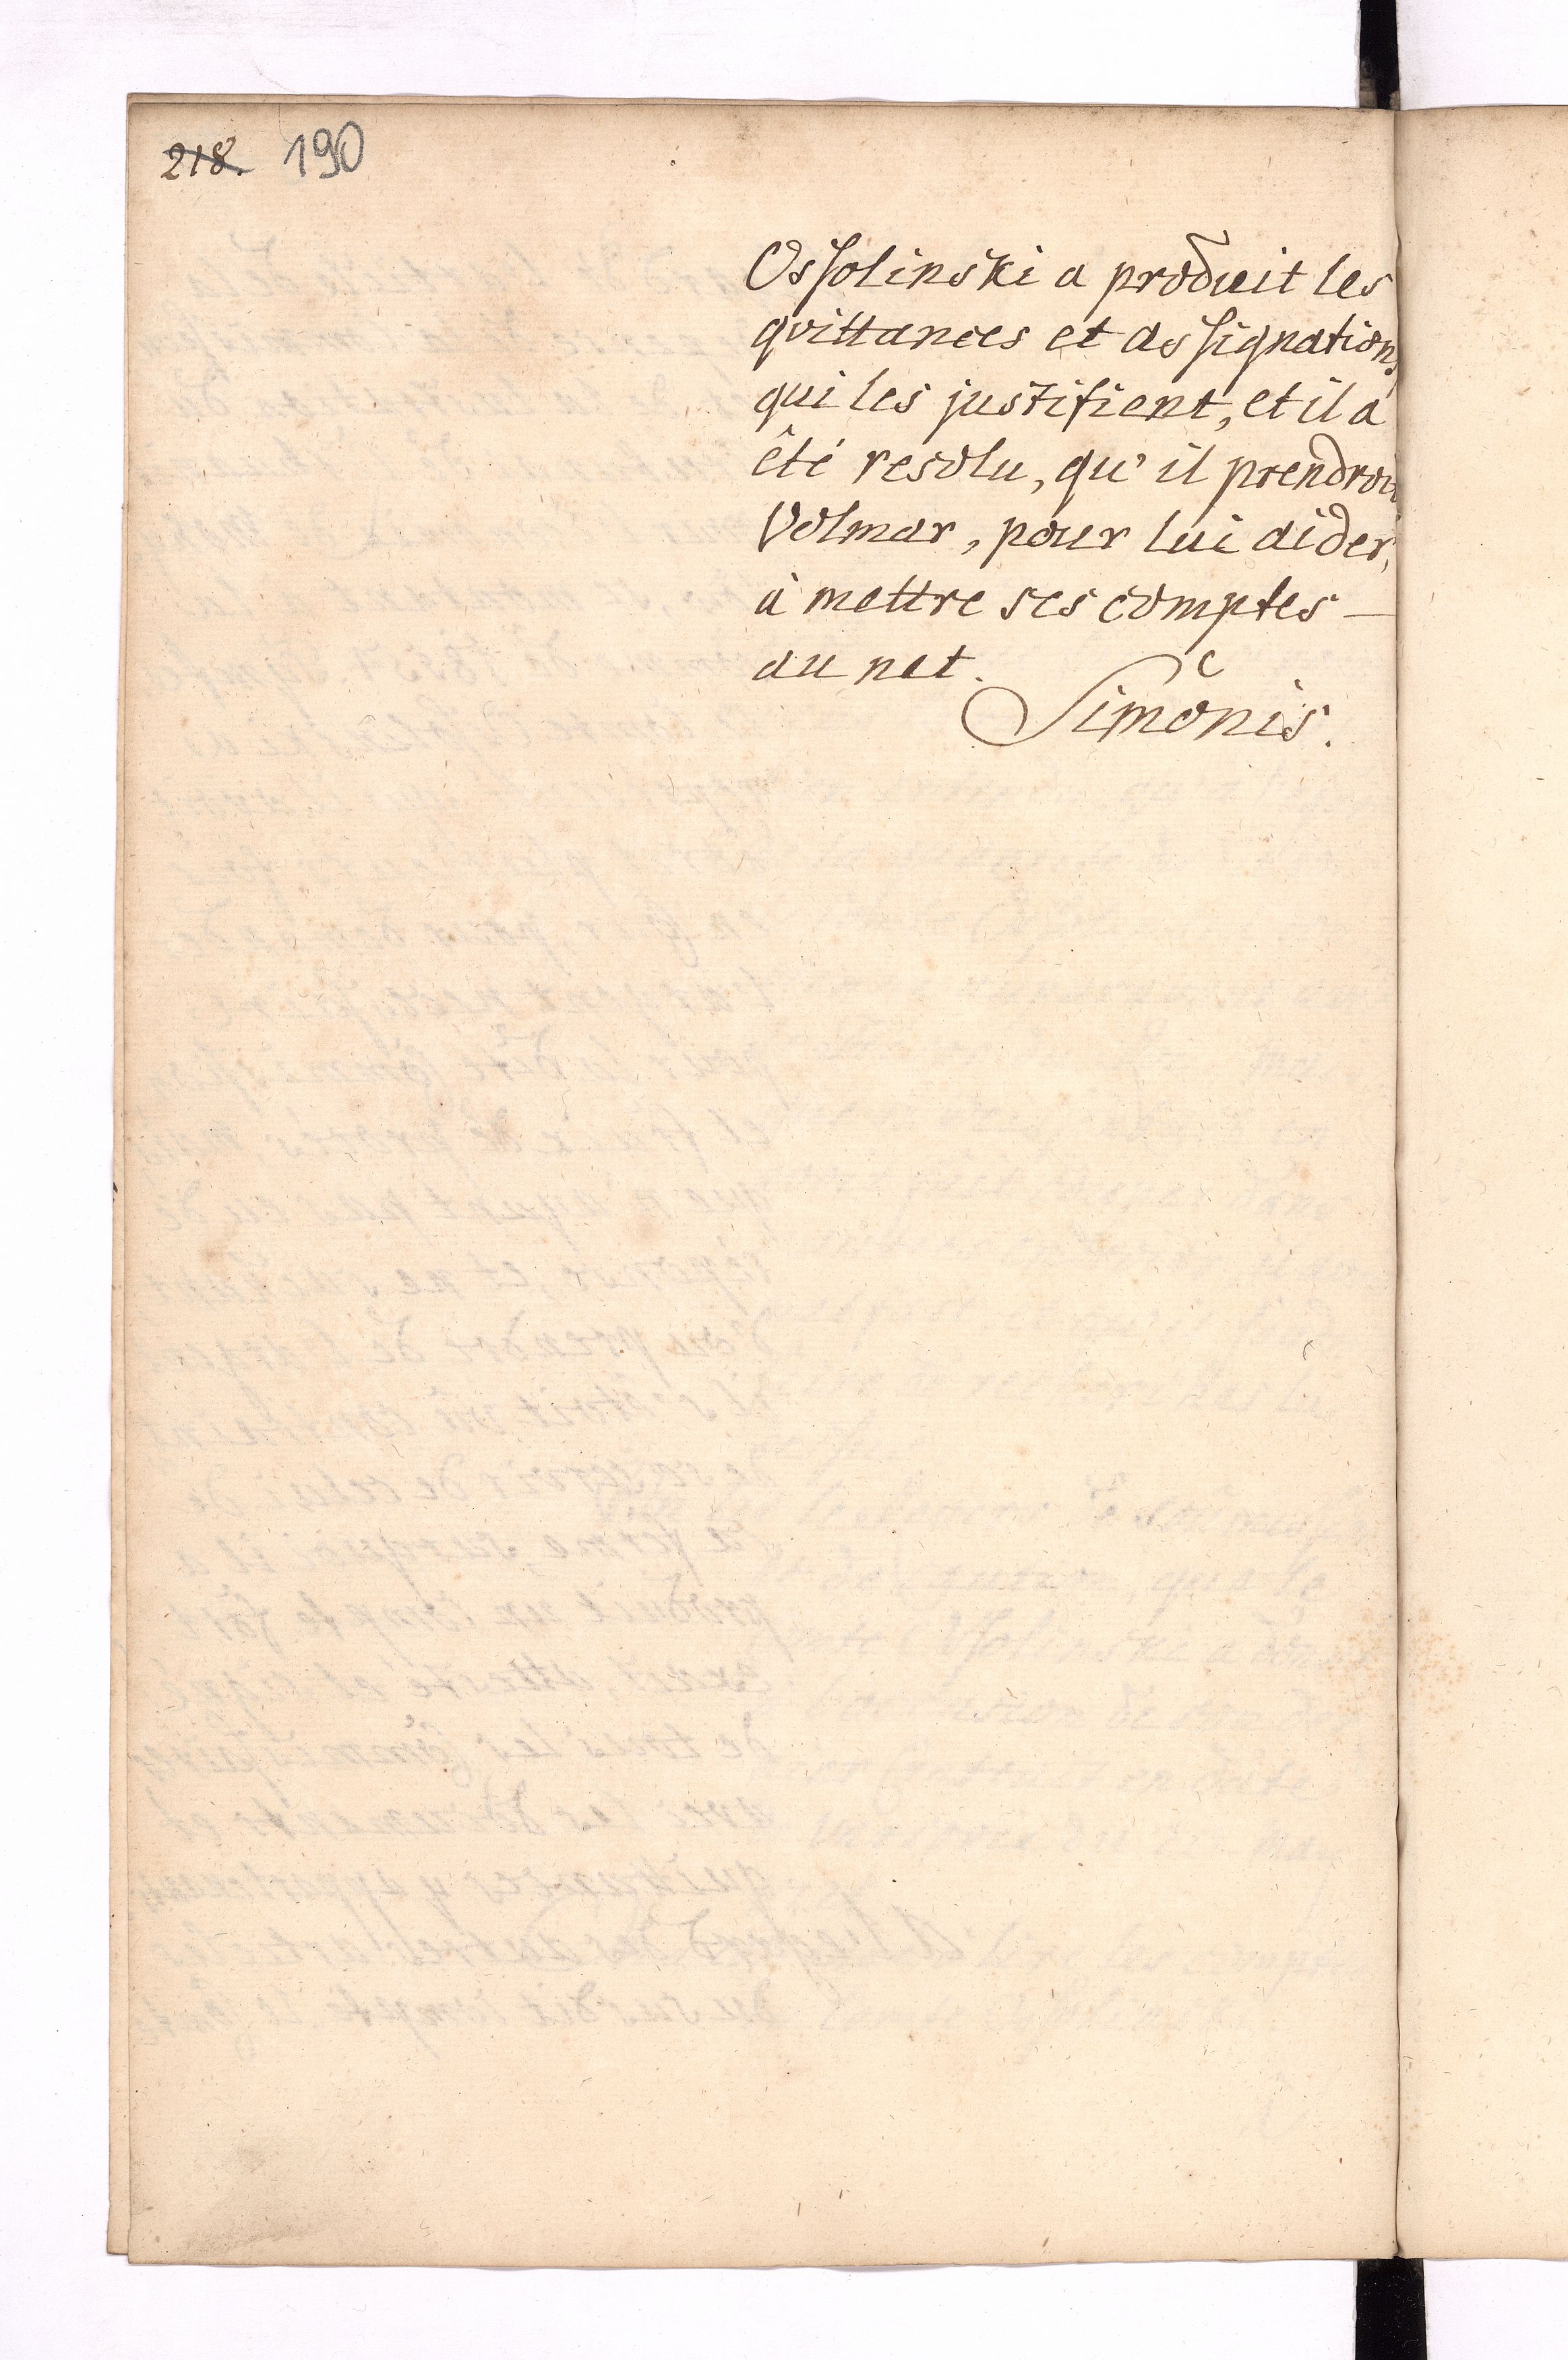 218. 190
Ossolinski a produit les
qvittances et assignations
qui les justifient, et il a
êté resolu, qu'il prendroit
Volmar, pour lui aider,
à mettre ses comptes —
au net.
Simonis.